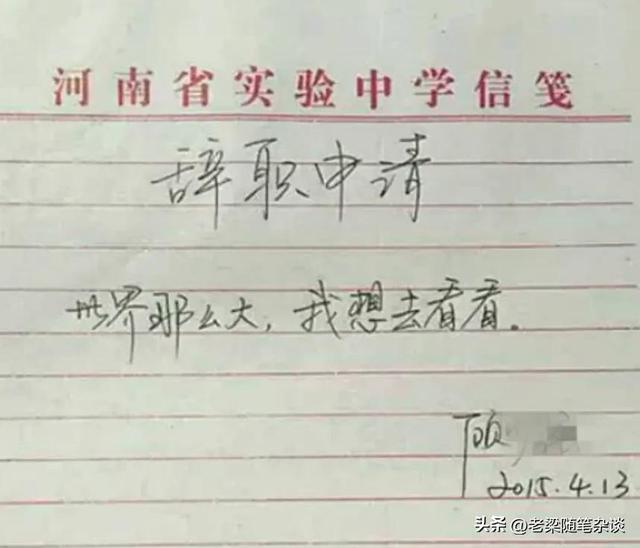 河南省实验中学信笺
辞职申请
世界那么大，我想去看看。
顾
2015.4.13
头条@老梁随笔杂谈